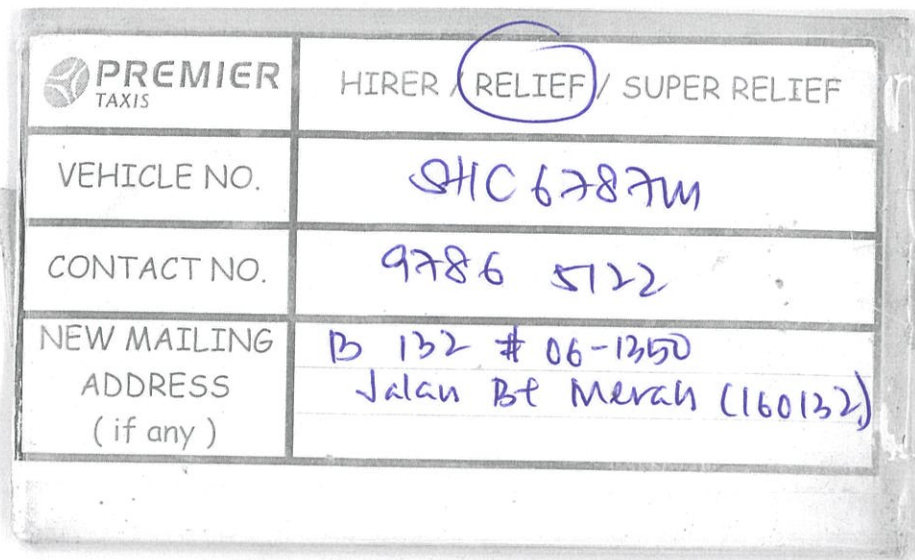 PREMIER
TAXIS
HIRER / RELIEF / SUPER RELIEF
VEHICLE NO.
SHC 6787M
CONTACT NO.
9786 5122
NEW MAILING
ADDRESS
( if any )
B 132 # 06-1350
Jalan Bt Merah (160132)